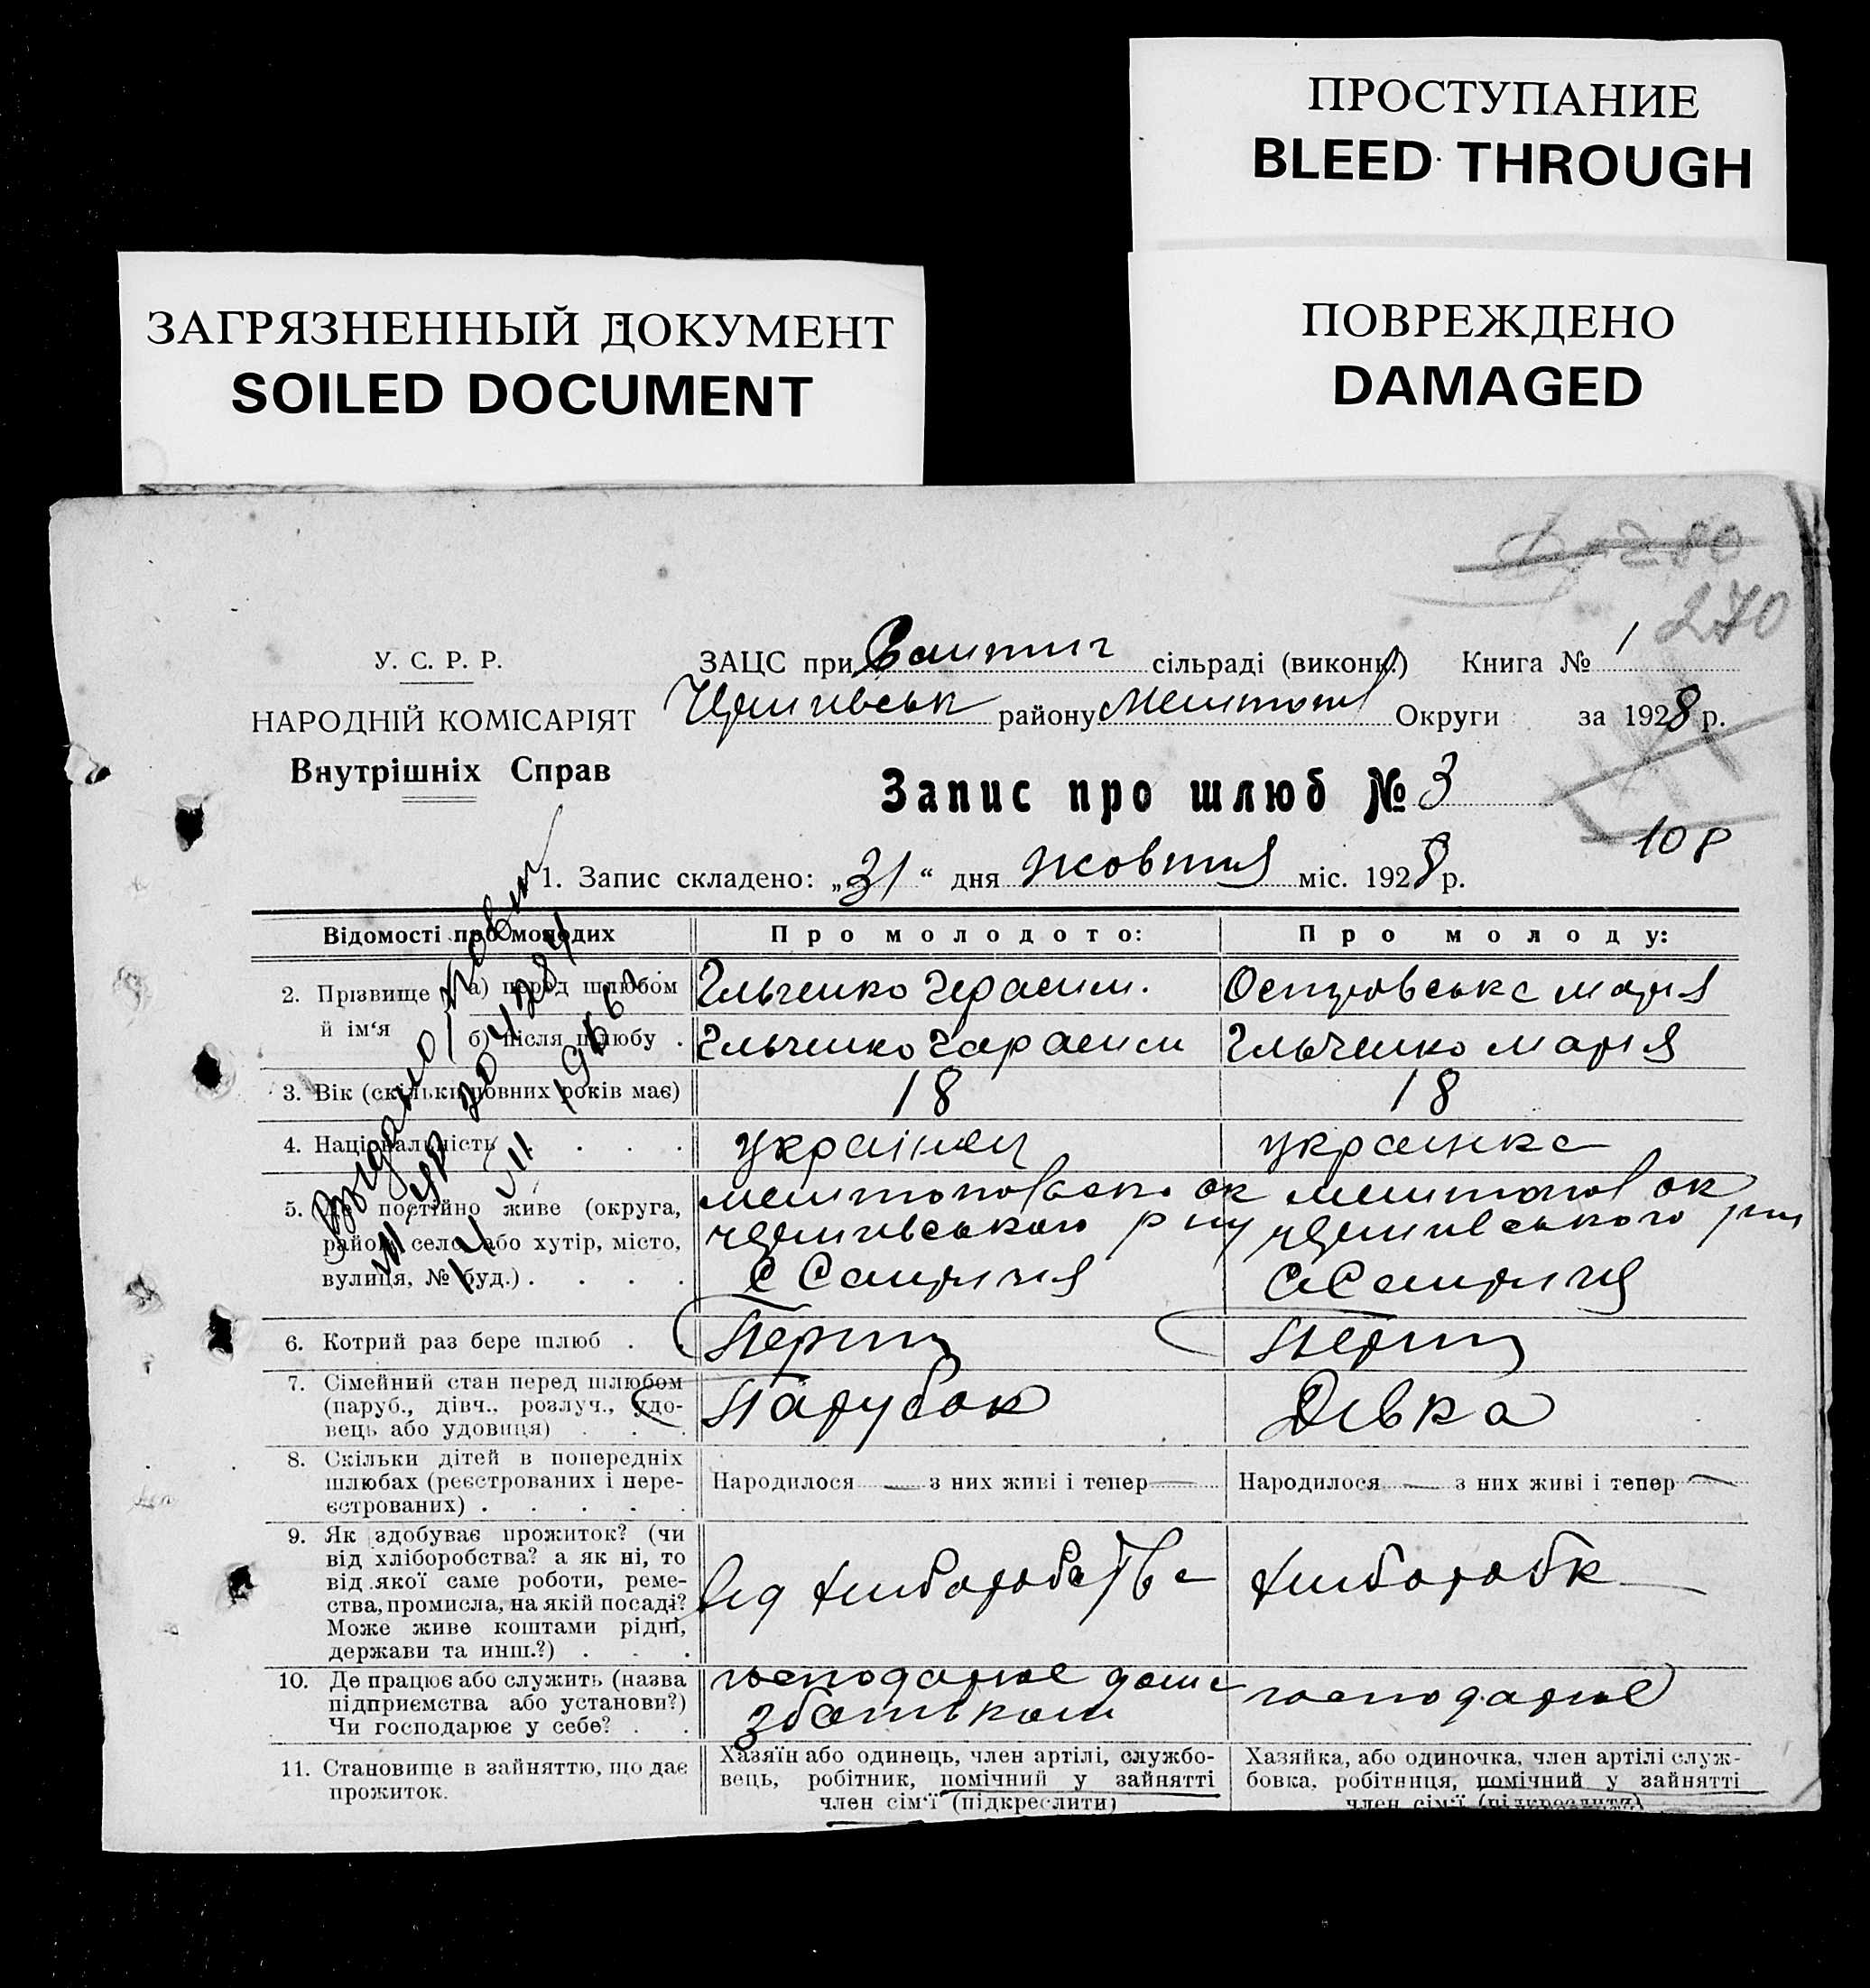 ПРОСТУПАНИЕ
BLEED THROUGH
ЗАГРЯЗНЕННЫЙ ДОКУМЕНТ
SOILED DOCUMENT
ПОВРЕЖДЕНО
DAMAGED
270
У. С. Р. Р.
НАРОДНІЙ КОМІСАРІЯТ
Внутрішніх Справ
ЗАЦС при сільраді (виконк.) Книга № 1
району Округи за 1928 р.
Запис про шлюб № 3
108
1. Запис складено: „31“ дня жовтня міс. 1928 р.
Відомості про молодих Про молодого: Про молоду:
2. Прізвище й ім‘я
а) перед шлюбом Ільченко Герасим. Островська Марія
б) після шлюбу . Ільченко Гарасим Ільченко Марія
3. Вік (скільки повних років має) 18 18
4. Національність . . . . українец українка
5. Де постійно живе (округа,
район, село або хутір, місто,
вулиця, № буд.) . . . .
6. Котрий раз бере шлюб . . Перши Перши
7. Сімейний стан перед шлюбом
(паруб., дівч., розлуч., удо-
вець або удовиця) . . .
Парубок Дівка
8. Скільки дітей в попередніх
шлюбах (реєстрованих і нере-
єстрованих) . . . . .
Народилося — з них живі і тепер — Народилося — з них живі і тепер —
9. Як здобуває прожиток? (чи
від хліборобства? а як ні, то
від якої саме роботи, реме-
ства, промисла, на якій посаді?
Може живе коштами рідні,
держави та инш.?) . . .
від хліборобства хлиборобк
10. Де працює або служить (назва
підприємства або установи?)
Чи господарює у себе? . .
господарює дома
з батьком
господарює
11. Становище в зайняттю, що дає
прожиток.
Хазяїн або одинець, член артілі, службо-
вець, робітник, помічний у зайнятті
член сім‘ї (підкреслити)
Хазяйка, або одиночка, член артілі служ-
бовка, робітниця, помічний у зайнятті
член сім‘ї (підкреслити)